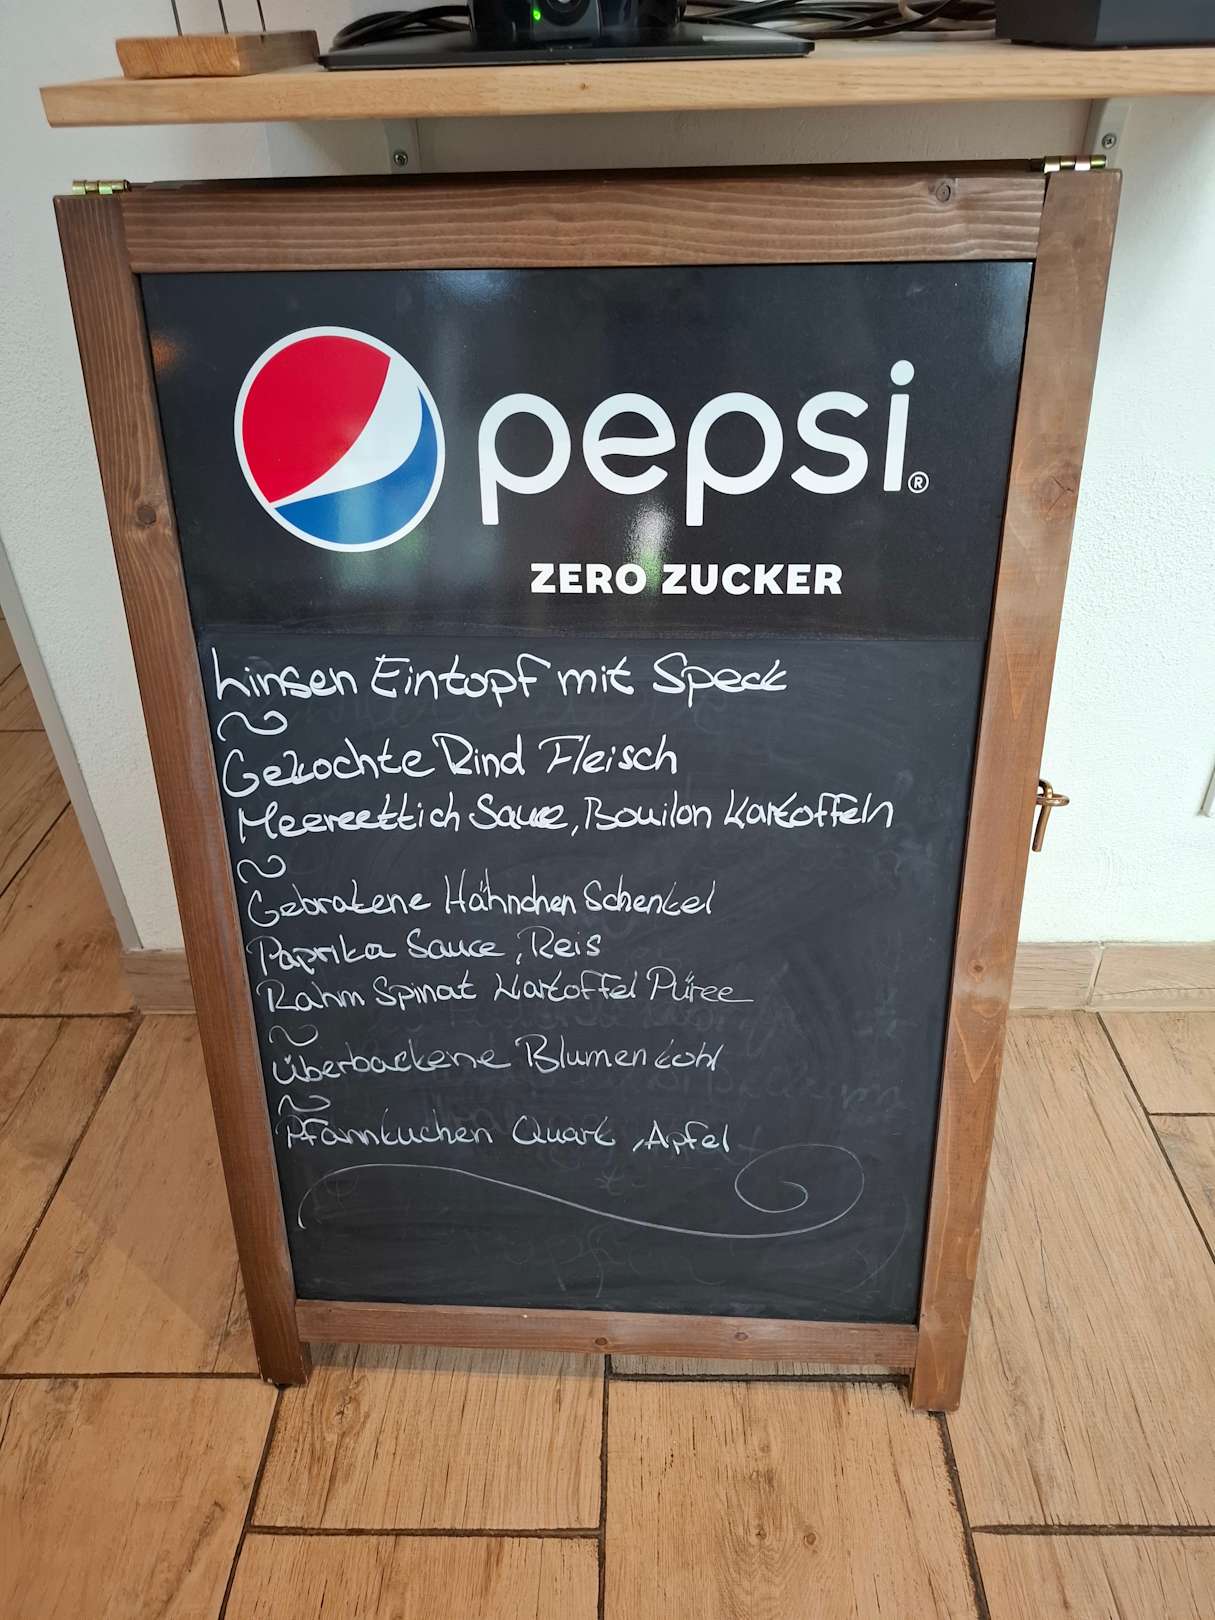 pepsi®
ZERO ZUCKER
Linsen Eintopf mit Speck
Gekochte Rind Fleisch
Meerrettich Sauce, Bouilon Kartoffeln
Gebratene Hähnchen Schenkel
Paprika Sauce, Reis
Rahm Spinat Kartoffel Püree
überbackene Blumenkohl
Pfannkuchen Quark, Apfel